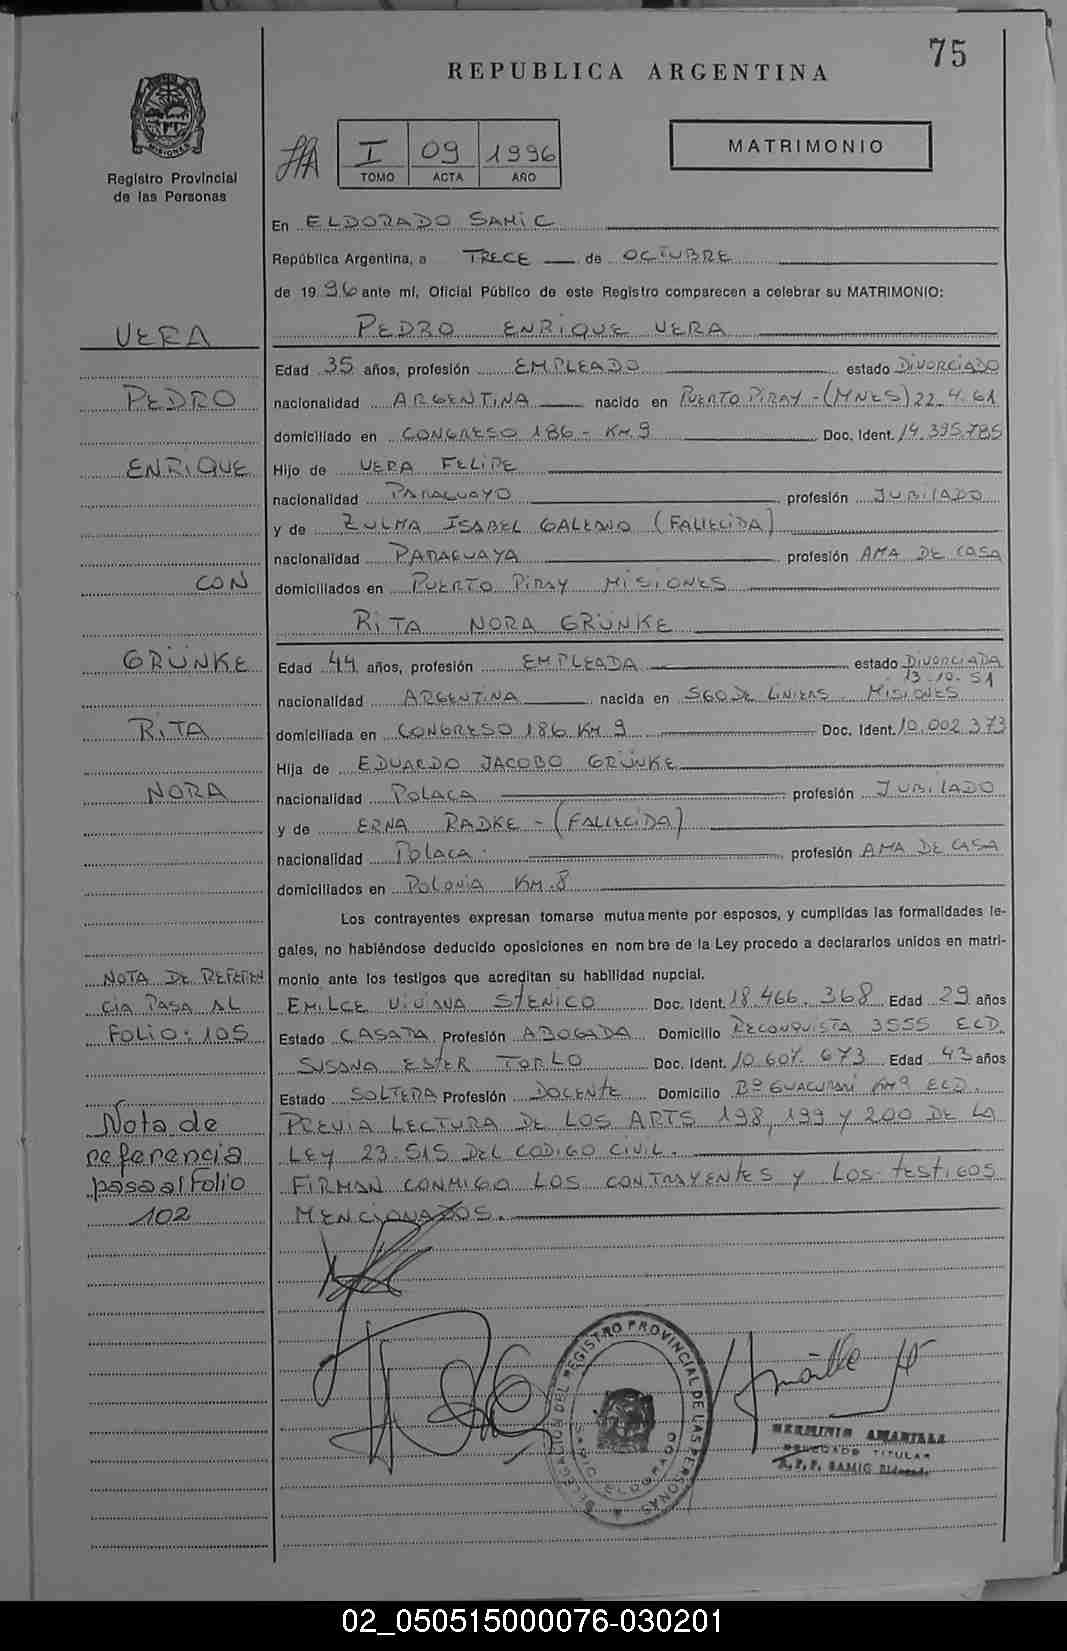 75
REPUBLICA ARGENTINA
MISIONES
Registro Provincial
de las Personas
I 09 1996
TOMO ACTA AÑO
MATRIMONIO
En ELDORADO SAMIC
República Argentina, a TRECE de OCTUBRE
de 19 96 ante mí, Oficial Público de este Registro comparecen a celebrar su MATRIMONIO:
VERA
PEDRO ENRIQUE VERA
Edad 35 años, profesión EMPLEADO estado DIVORCIADO
PEDRO
nacionalidad ARGENTINA nacido en PUERTO PIRAY - (MNES) 22.4.61
domiciliado en CONGRESO 186 - KM.9 Doc. Ident. 14.395.785
ENRIQUE
Hijo de VERA FELIPE
nacionalidad PARAGUAYO profesión JUBILADO
y de ZULMA ISABEL GALEANO (FALLECIDA)
nacionalidad PARAGUAYA profesión AMA DE CASA
CON
domiciliados en PUERTO PIRAY MISIONES
RITA NORA GRÜNKE
GRÜNKE
Edad 44 años, profesión EMPLEADA estado DIVORCIADA
13.10.51
nacionalidad ARGENTINA nacida en SGO DE LINIERS. MISIONES
RITA
domiciliada en CONGRESO 186 KM 9 Doc. Ident. 10.002.373
Hija de EDUARDO JACOBO GRÜNKE
NORA
nacionalidad POLACA profesión JUBILADO
y de ERNA RADKE - (FALLECIDA)
nacionalidad POLACA. profesión AMA DE CASA
domiciliados en POLONIA KM.8
Los contrayentes expresan tomarse mutuamente por esposos, y cumplidas las formalidades le-
gales, no habiéndose deducido oposiciones en nombre de la Ley procedo a declararlos unidos en matri-
monio ante los testigos que acreditan su habilidad nupcial.
NOTA DE REFEREN
CIA PASA AL
FOLIO: 105
EMILCE VIVIANA STENICO Doc. Ident. 18.466.368 Edad 29 años
Estado CASADA Profesión ABOGADA Domicilio RECONQUISTA 3555 ELD.
SUSANA ESTER TORLO Doc. Ident. 10.601.673 Edad 43 años
Estado SOLTERA Profesión DOCENTE Domicilio Bº GUACURARI KM9 ELD.
Nota de
referencia
pasa al Folio
102
PREVIA LECTURA DE LOS ARTS 198, 199 Y 200 DE LA
LEY 23.515 DEL CODIGO CIVIL.
FIRMAN CONMIGO LOS CONTRAYENTES Y LOS TESTIGOS
MENCIONADOS.
DELEGACION DEL REGISTRO PROVINCIAL DE LAS PERSONAS
SAMIC ELDORADO
HERMINIO AMARILLA
DELEGADO TITULAR
R.P.P. SAMIC Eldorado
02_050515000076-030201